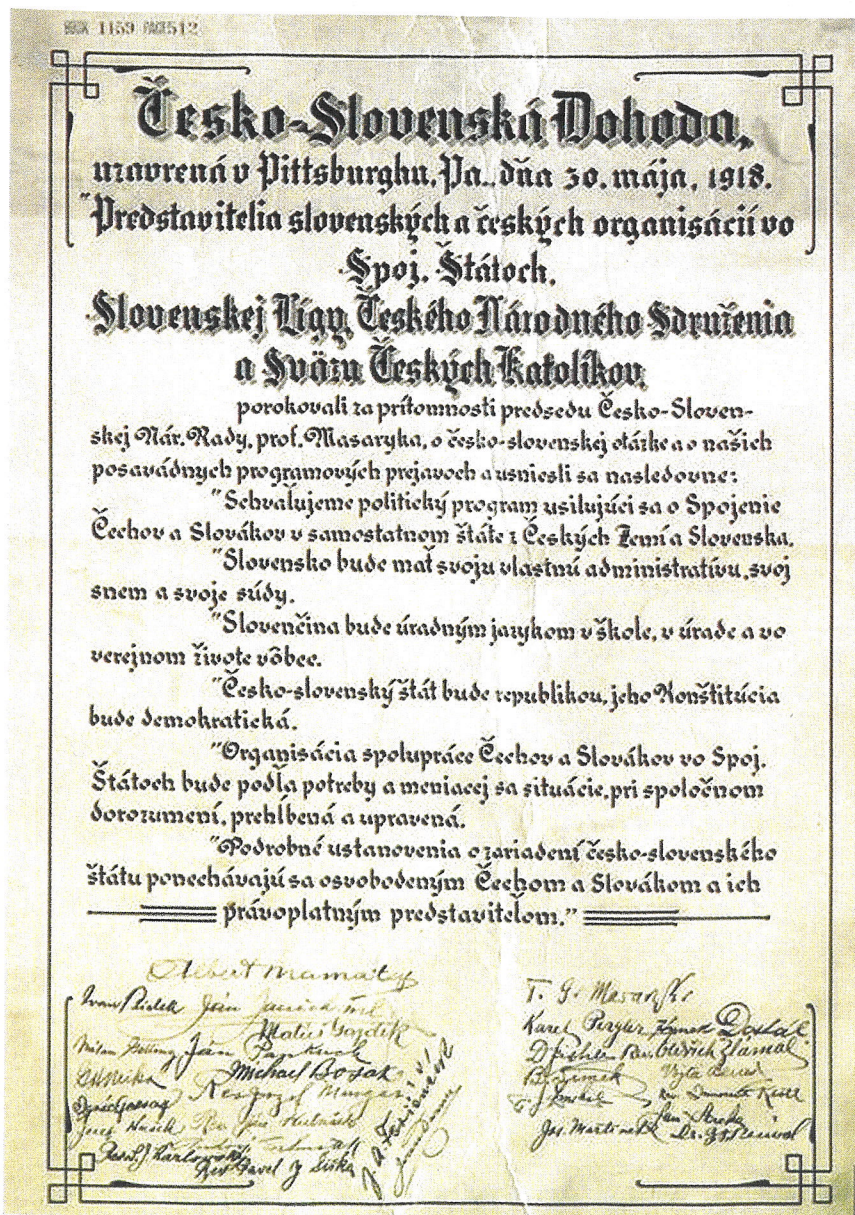 BOOK 1159 PAGE 512
Česko-Slovenská Dohoda,
uzavrená v Pittsburghu, Pa., dňa 30. mája, 1918.
"Predstavitelia slovenských a českých organisácií vo
Spoj. Štátoch,
Slovenskej Ligy, Českého Národného Sdruženia
a Sväzu Českých Katolíkov,
porokovali za prítomnosti predsedu Česko-Sloven-
skej Nár. Rady, prof. Masaryka, o česko-slovenskej otázke a o našich
posavádnych programových prejavoch a usniesli sa nasledovne:
"Schvaľujeme politický program usilujúci sa o Spojenie
Čechov a Slovákov v samostatnom štáte z Českých Zemí a Slovenska.
"Slovensko bude mať svoju vlastnú administratívu, svoj
snem a svoje súdy.
"Slovenčina bude úradným jazykom v škole, v úrade a vo
verejnom živote vôbec.
"Česko-slovenský štát bude republikou, jeho Konštitúcia
bude demokratická.
"Organisácia spolupráce Čechov a Slovákov vo Spoj.
Štátoch bude podľa potreby a meniacej sa situácie, pri spoločnom
dorozumení, prehĺbená a upravená.
"Podrobné ustanovenia o zariadení česko-slovenského
štátu ponechávajú sa osvobodeným Čechom a Slovákom a ich
právoplatným predstaviteľom."
Albert Mamatey
Ivan Bielek Ján Janček
Matúš Gajdík
Milan Getting Ján Pankuch
Michael Bosák
T. G. Masaryk
Karel Pergler Dostál
Oldřich Zlámal
Jos. Martinek